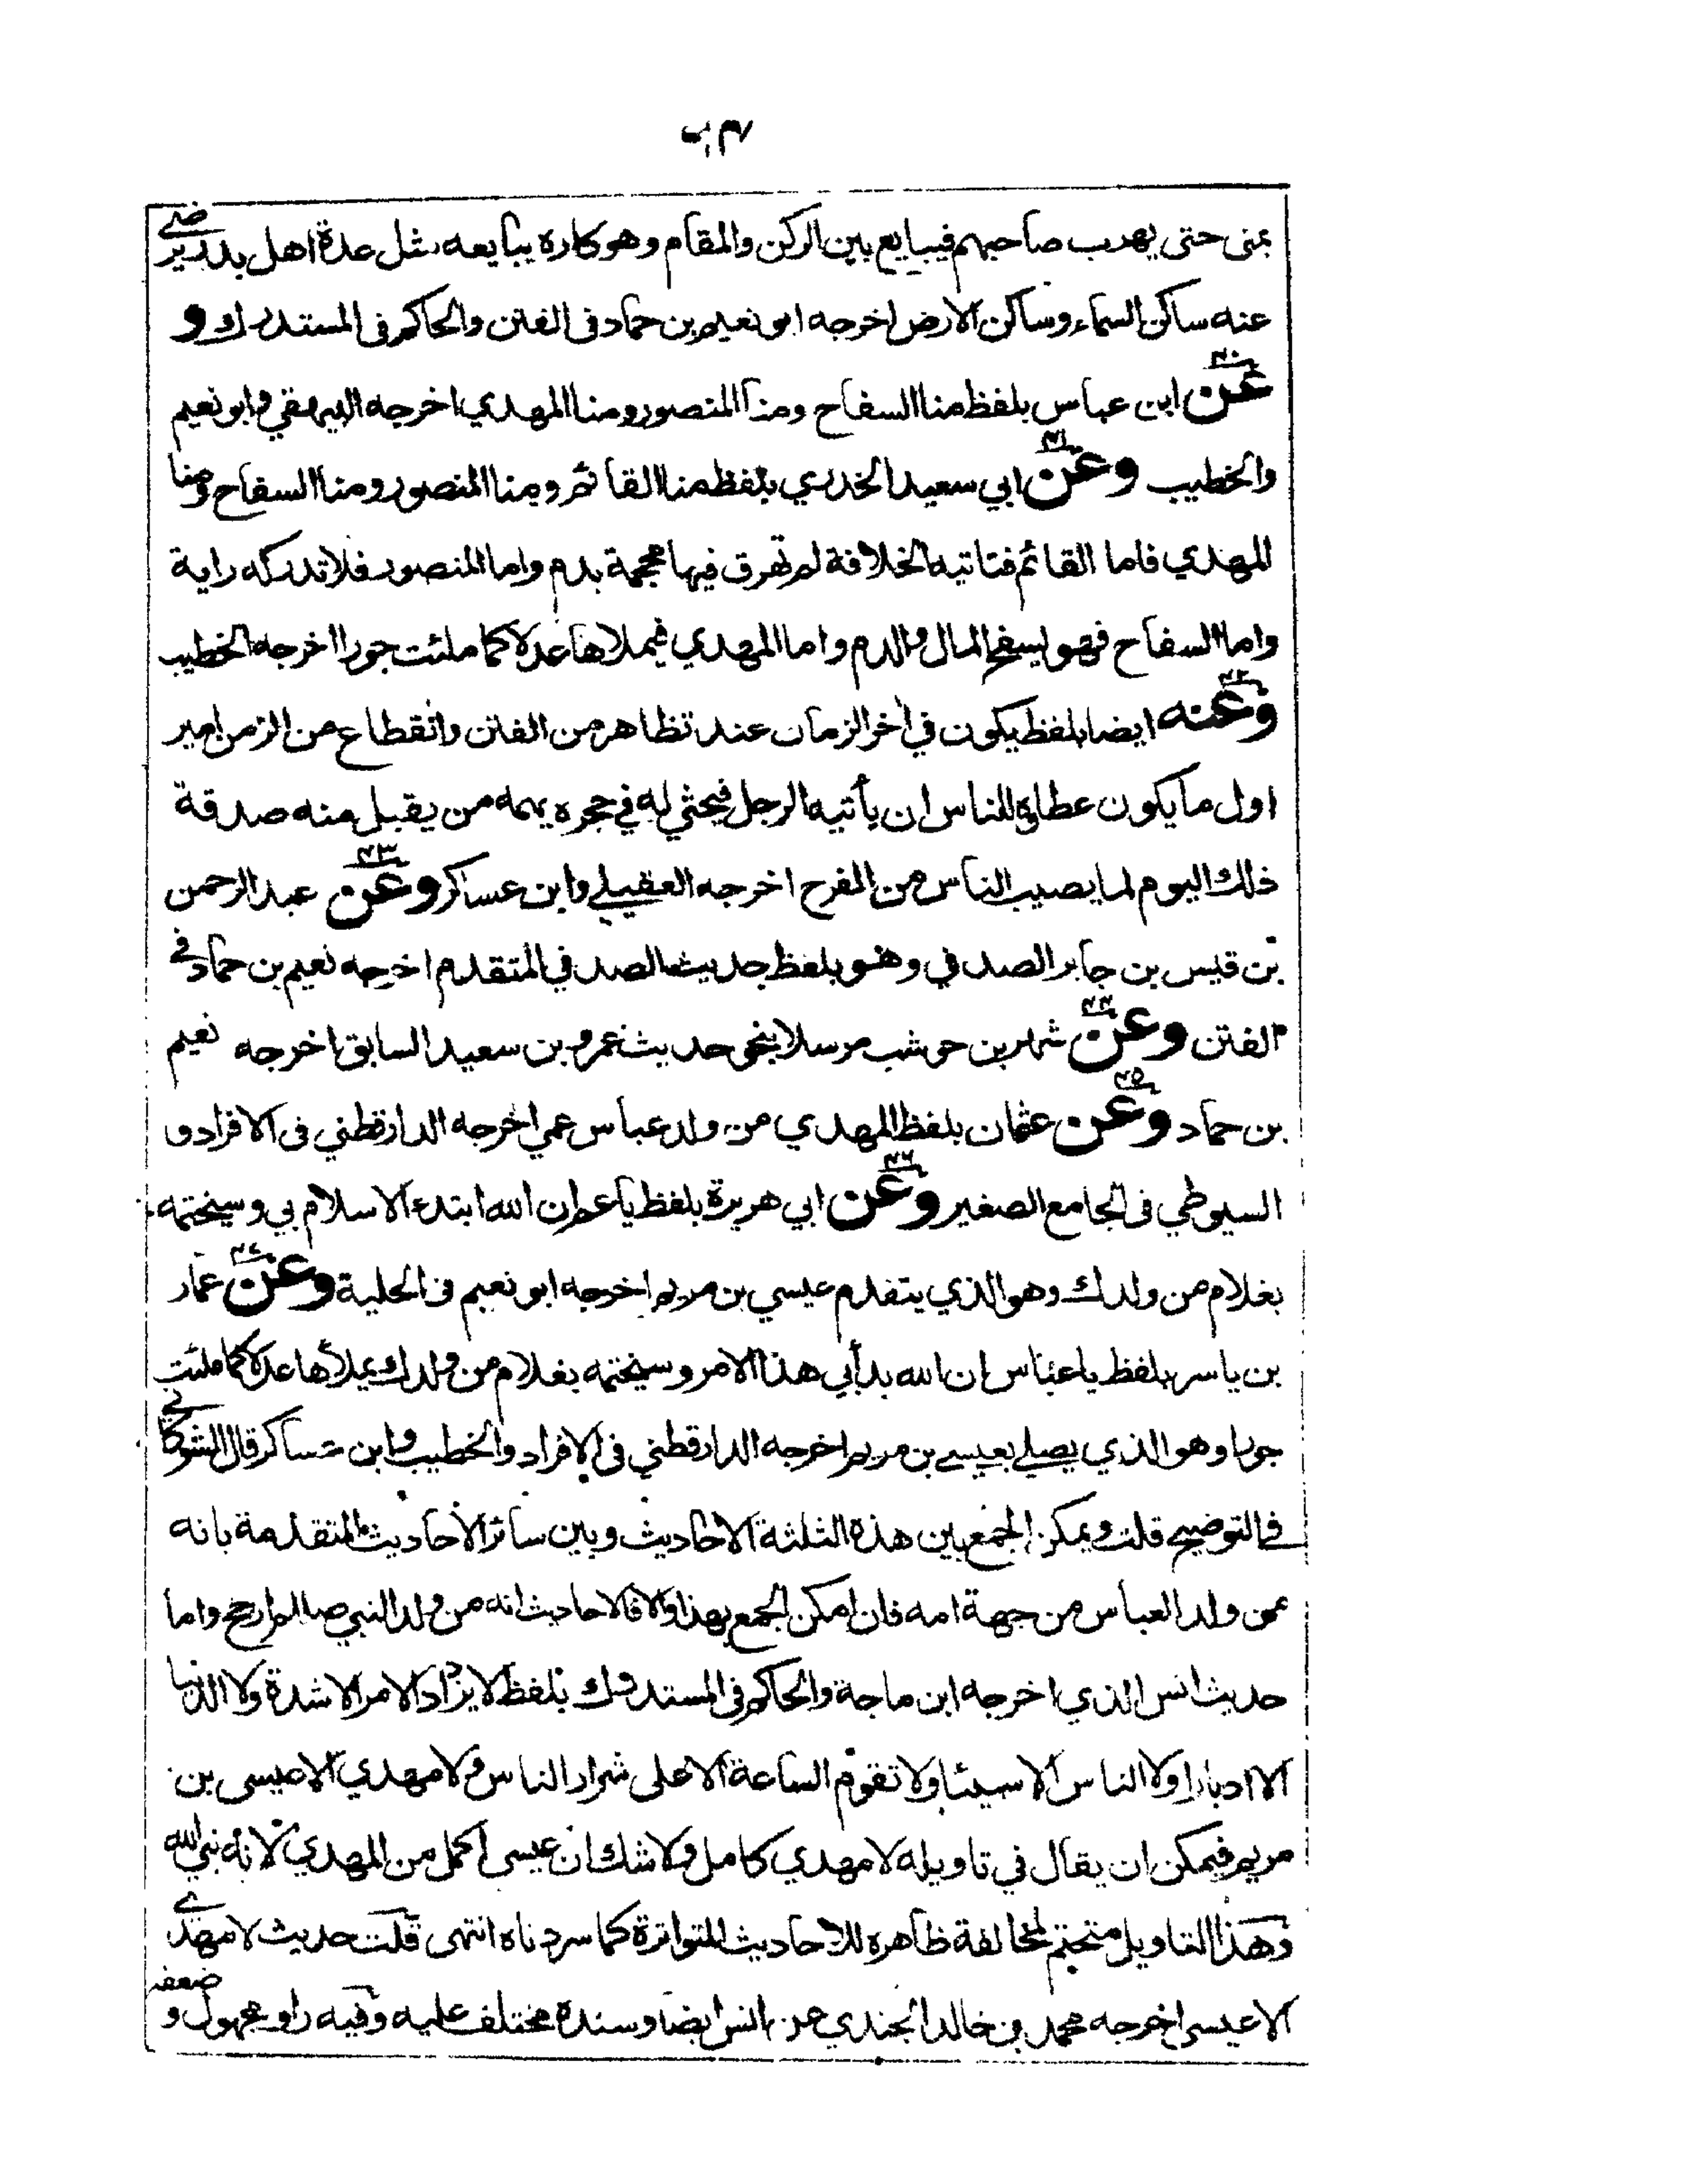 بمنى حتى يهرب صاحبهم فيبايع بين الركن والمقام وهو كاره يبايعه مثل عدة اهل بدر يرضى
عنه ساكن السماء وساكن الارض اخرجه ابو نعيم بن حماد فى الفتن والحاكم فى المستدرك و
عن ابن عباس بلفظ منا السفاح ومنا المنصور ومنا المهدي اخرجه البيهقي وابو نعيم
والخطيب وعن ابي سعيد الخدري بلفظ منا القائم ومنا المنصور ومنا السفاح ومنا
المهدي فاما القائم فتاتيه الخلافة لم تهرق فيها محجمة بدم واما المنصور فلا تدركه راية
واما السفاح فهو يسفح المال والدم واما المهدي فيملاها عدلا كما ملئت جورا اخرجه الخطيب
وعنه ايضا بلفظ يكون في اخر الزمان عند تظاهر من الفتن وانقطاع من الزمن امير
اول ما يكون عطاؤه للناس ان يأتيه الرجل فيحثي له في حجره يهمه من يقبل منه صدقة
ذلك اليوم لما يصيب الناس من الفرح اخرجه العقيلي وابن عساكر وعن عبد الرحمن
بن قيس بن جابر الصدفي وهو بلفظ حديث الصدفي المتقدم اخرجه نعيم بن حماد في
الفتن وعن شهر بن حوشب مرسلا بنحو حديث عمرو بن سعيد السابق اخرجه نعيم
بن حماد وعن عثمان بلفظ المهدي من ولد عباس عمي اخرجه الدارقطني فى الافراد و
السيوطي فى الجامع الصغير وعن ابي هريرة بلفظ يا عم ان الله ابتدء الاسلام بي وسيختمه
بغلام من ولدك وهو الذي يتقدم عيسي بن مريم اخرجه ابو نعيم فى الحلية وعن عمار
بن ياسر بلفظ يا عباس ان الله بدأبي هذا الامر وسيختمه بغلام من ولدك يملأها عدلا كما ملئت
جورا وهو الذي يصلي بعيسى بن مريم اخرجه الدارقطني فى الافراد والخطيب وابن عساكر قال الشوكاني
في التوضيح قلت ويمكن الجمع بين هذه الثلثة الاحاديث وبين سائر الاحاديث المتقدمة بانه
من ولد العباس من جهة امه فان امكن الجمع بهذا والا فالاحاديث انه من ولد النبي صللم ارجح واما
حديث انس الذي اخرجه ابن ماجة والحاكم فى المستدرك بلفظ لا يزداد الامر الا شدة ولا الدنيا
الا ادبارا ولا الناس الا سيئا ولا تقوم الساعة الا على شرار الناس ولا مهدي الا عيسى بن
مريم فيمكن ان يقال في تاويله لا مهدي كامل ولا شك ان عيسى اكمل من المهدي لانه نبي الله
وهذا التاويل متحتم لمخالفة ظاهره للاحاديث المتواترة كما سردناه انتهى قلت حديث لا مهدي
الا عيسى اخرجه محمد بن خالد الجندي عن انس ايضا وسنده مختلف عليه وفيه راو مجهول و ضعفه